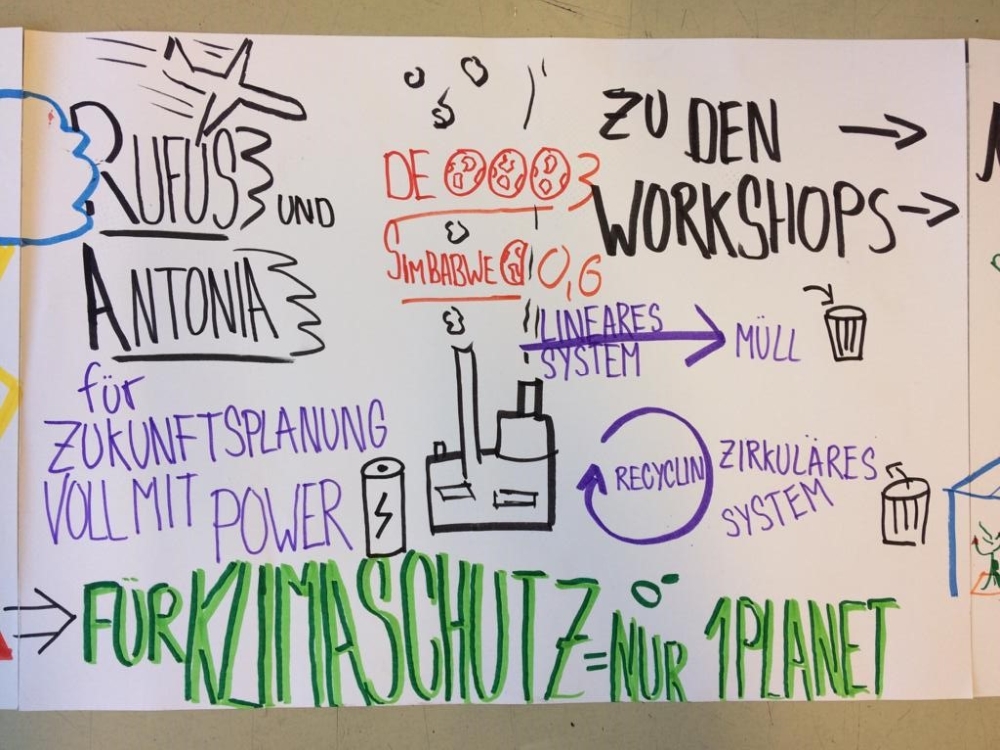 RUFUS UND
ANTONIA
für
ZUKUNFTSPLANUNG
VOLL MIT POWER
DE 3
SIMBABWE 0,6
ZU DEN
WORKSHOPS
LINEARES
SYSTEM
MÜLL
RECYCLIN
ZIRKULÄRES
SYSTEM
FÜR KLIMASCHUTZ = NUR 1 PLANET